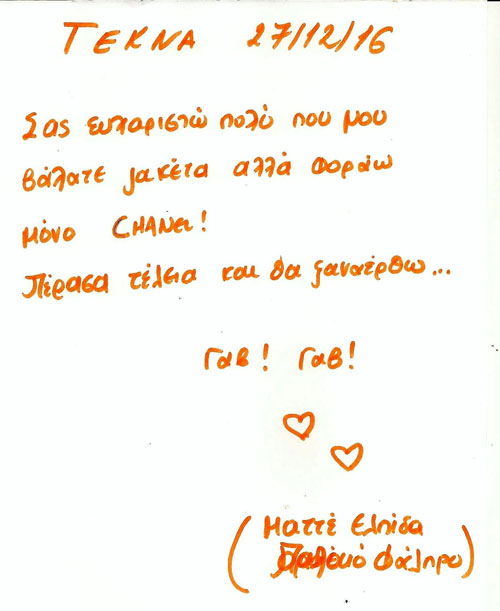 ΤΕΚΝΑ 27/12/16
Σας ευχαριστώ πολύ που μου
βάλατε ζακέτα αλλά φοράω
μόνο CHANEL!
Πέρασα τέλεια και θα ξαναέρθω...
ΓαΒ! ΓαΒ!
(Ματτέ Ελπίδα
Παλαιό Φάληρο)